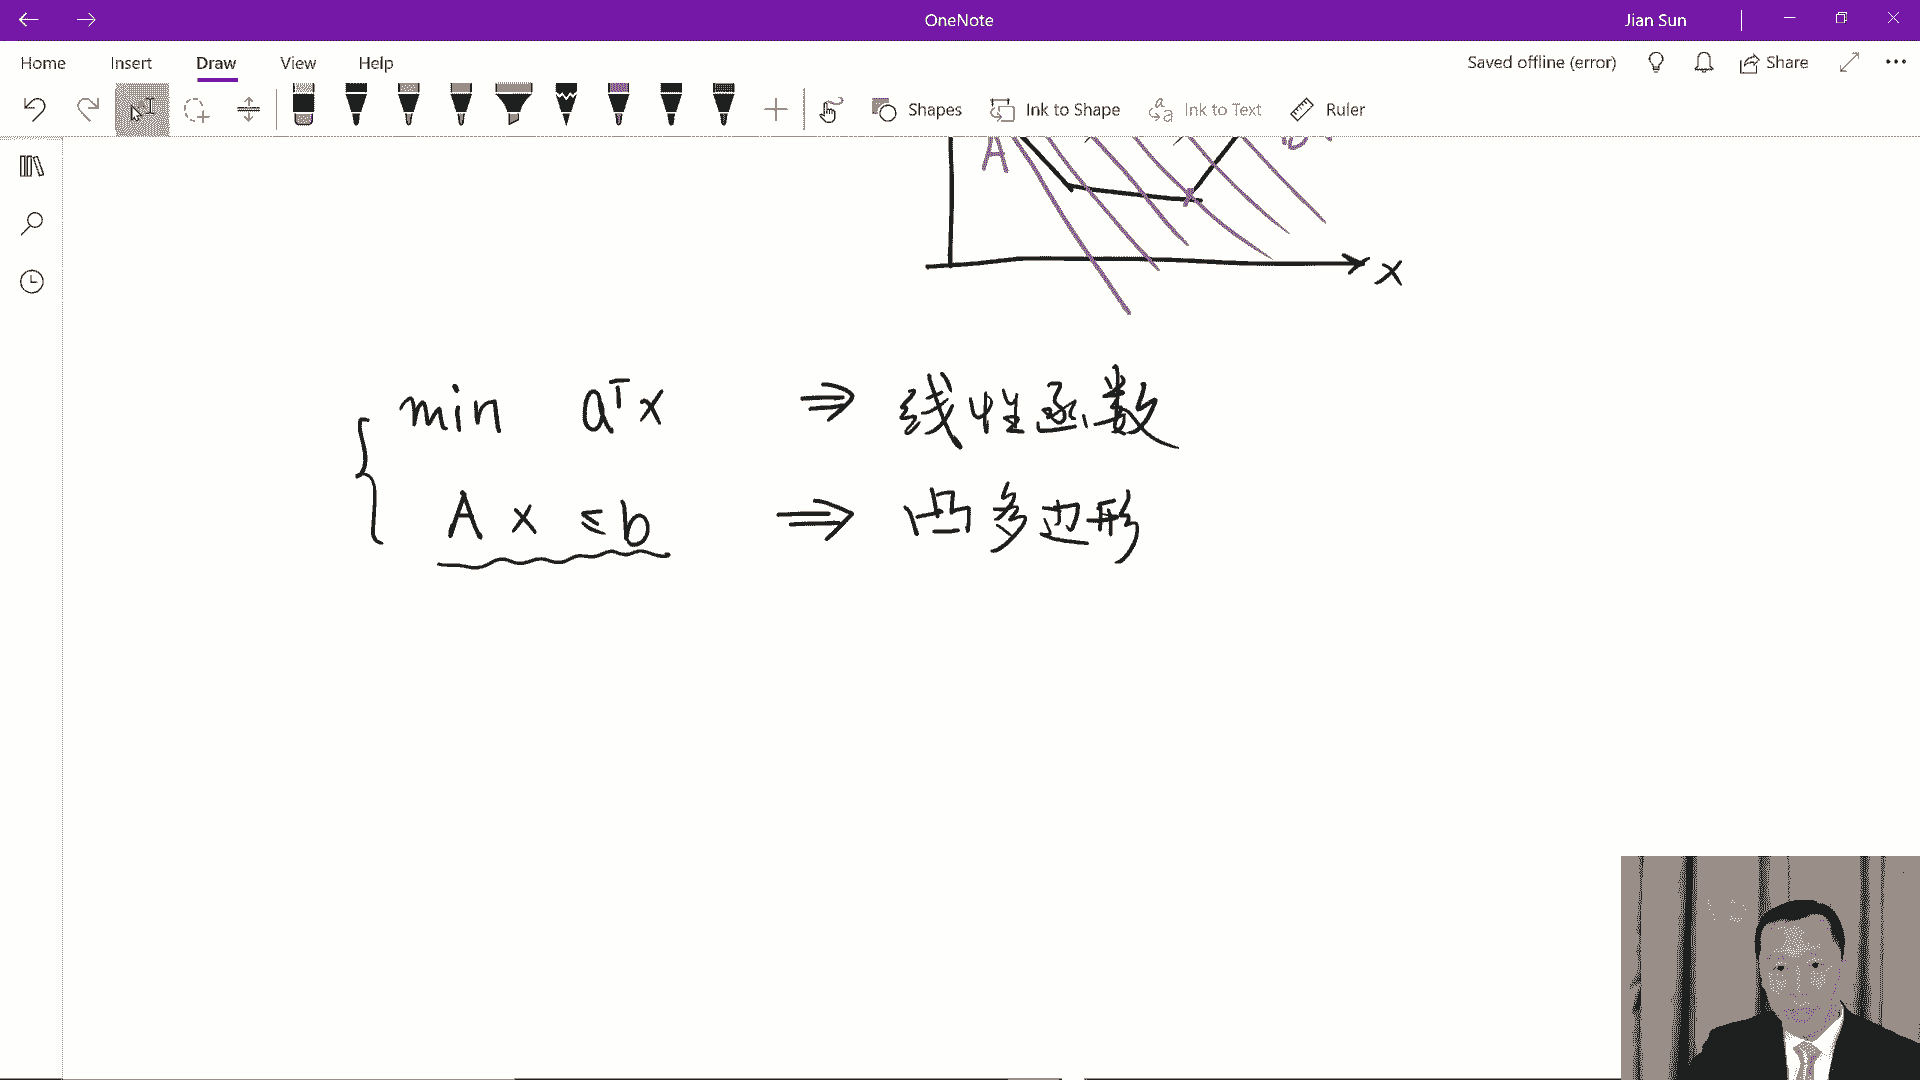 OneNote
Jian Sun
Home Insert Draw View Help
Saved offline (error)
Share
Shapes
Ink to Shape
Ink to Text
Ruler
A
x
min aᵀx ⇒ 线性函数
A x ≤ b ⇒ 凸多边形